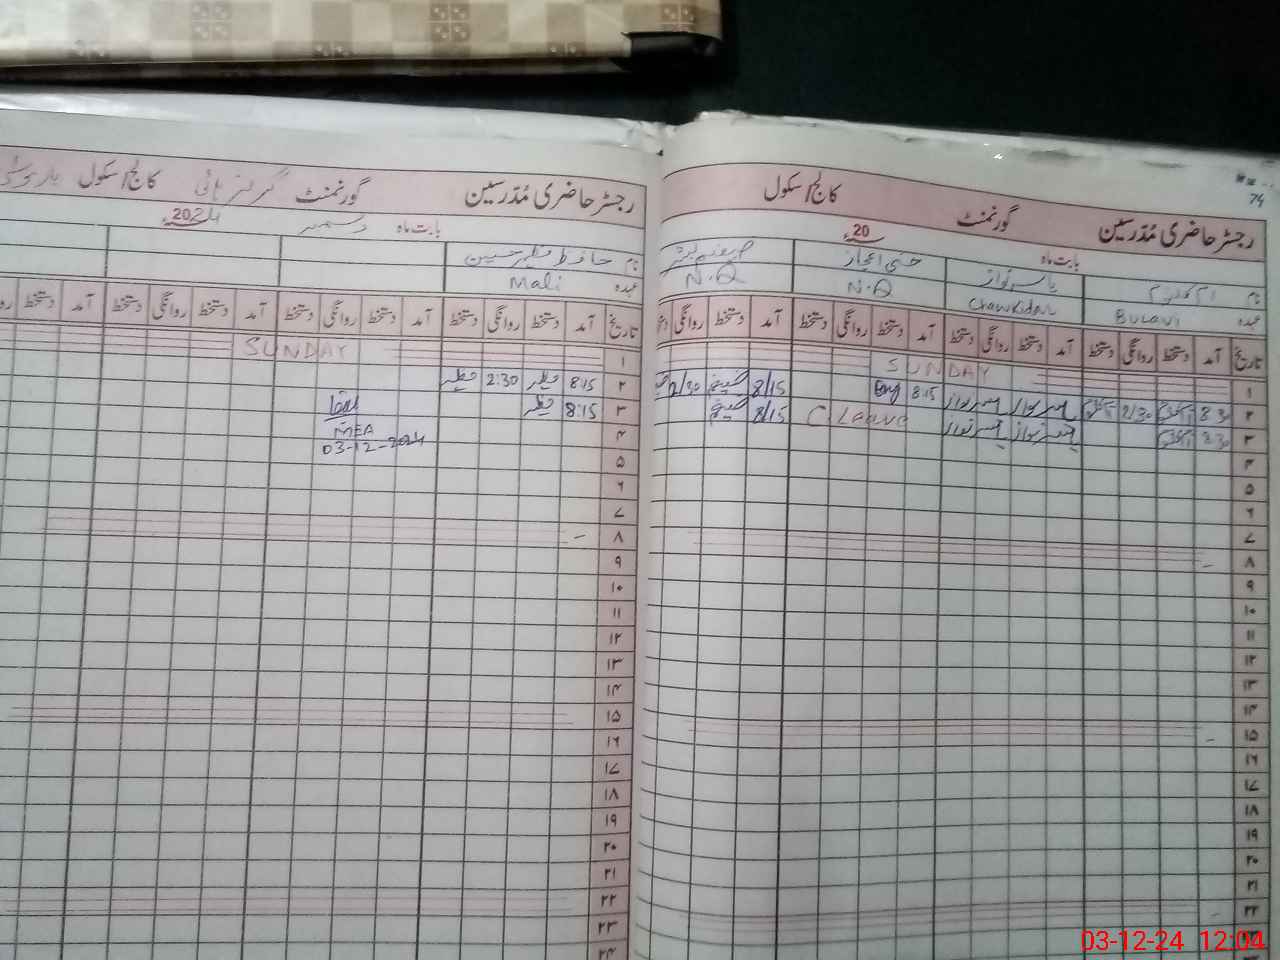 74
رجسٹر حاضری مُدرسین گورنمنٹ کالج/سکول
بابت ماہ 20ء
نام
عہدہ Bulavi Chawkidar N.Q N.Q
تاریخ آمد دستخط روانگی دستخط آمد دستخط روانگی دستخط آمد دستخط روانگی دستخط آمد دستخط روانگی
۱ SUNDAY
۲ 8:30 2/30 8:15 8/15 2/30
۳ 8:30 C.Leave 8/15
۴
۵
۶
۷
۸
۹
۱۰
۱۱
۱۲
۱۳
۱۴
۱۵
۱۶
۱۷
۱۸
۱۹
۲۰
۲۱
۲۲
۲۳
رجسٹر حاضری مُدرسین گورنمنٹ گرلز ہائی کالج/سکول
بابت ماہ دسمبر 2024ء
نام حافظ مظہر حسین
عہدہ Mali
تاریخ آمد دستخط روانگی دستخط آمد دستخط روانگی دستخط آمد دستخط روانگی دستخط آمد دستخط
۱ SUNDAY
۲ 8:15 مظہر 2:30 مظہر
۳ 8:15 مظہر
۴ MEA
03-12-2024
۵
۶
۷
۸
۹
۱۰
۱۱
۱۲
۱۳
۱۴
۱۵
۱۶
۱۷
۱۸
۱۹
۲۰
۲۱
۲۲
۲۳
۲۴
03-12-24 12:04